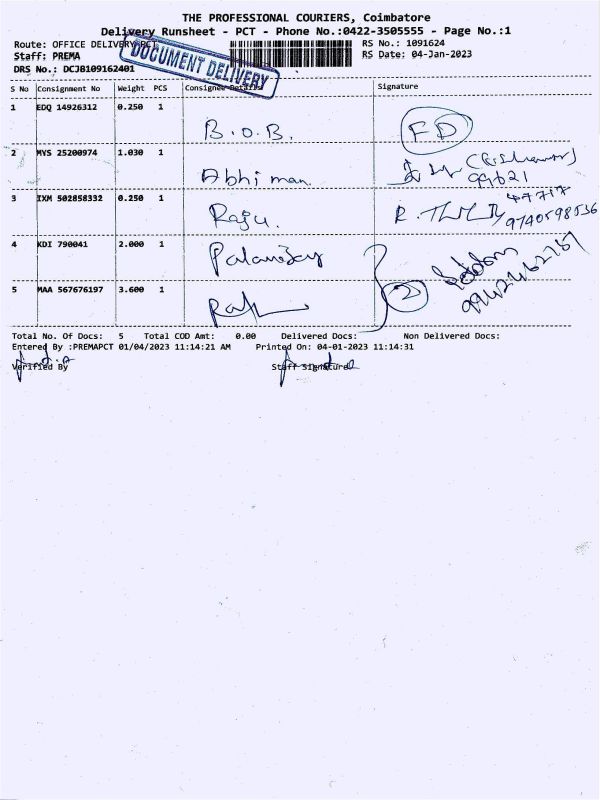 THE PROFESSIONAL COURIERS, Coimbatore
Delivery Runsheet - PCT - Phone No.:0422-3505555 - Page No.:1
Route: OFFICE DELIVERY PCT RS No.: 1091624
Staff: PREMA RS Date: 04-Jan-2023
DOCUMENT DELIVERY
DRS No.: DCJB109162401
S No Consignment No Weight PCS Consignee Details Signature
1 EDQ 14926312 0.250 1
B.O.B. FD
2 MYS 25200974 1.030 1
Abhiman 99621
3 IXM 502858332 0.250 1 47717
Raju. R. 9740598536
4 KDI 790041 2.000 1
5 MAA 567676197 3.600 1
2
Total No. Of Docs: 5 Total COD Amt: 0.00 Delivered Docs: Non Delivered Docs:
Entered By :PREMAPCT 01/04/2023 11:14:21 AM Printed On: 04-01-2023 11:14:31
Verified By Staff Signature